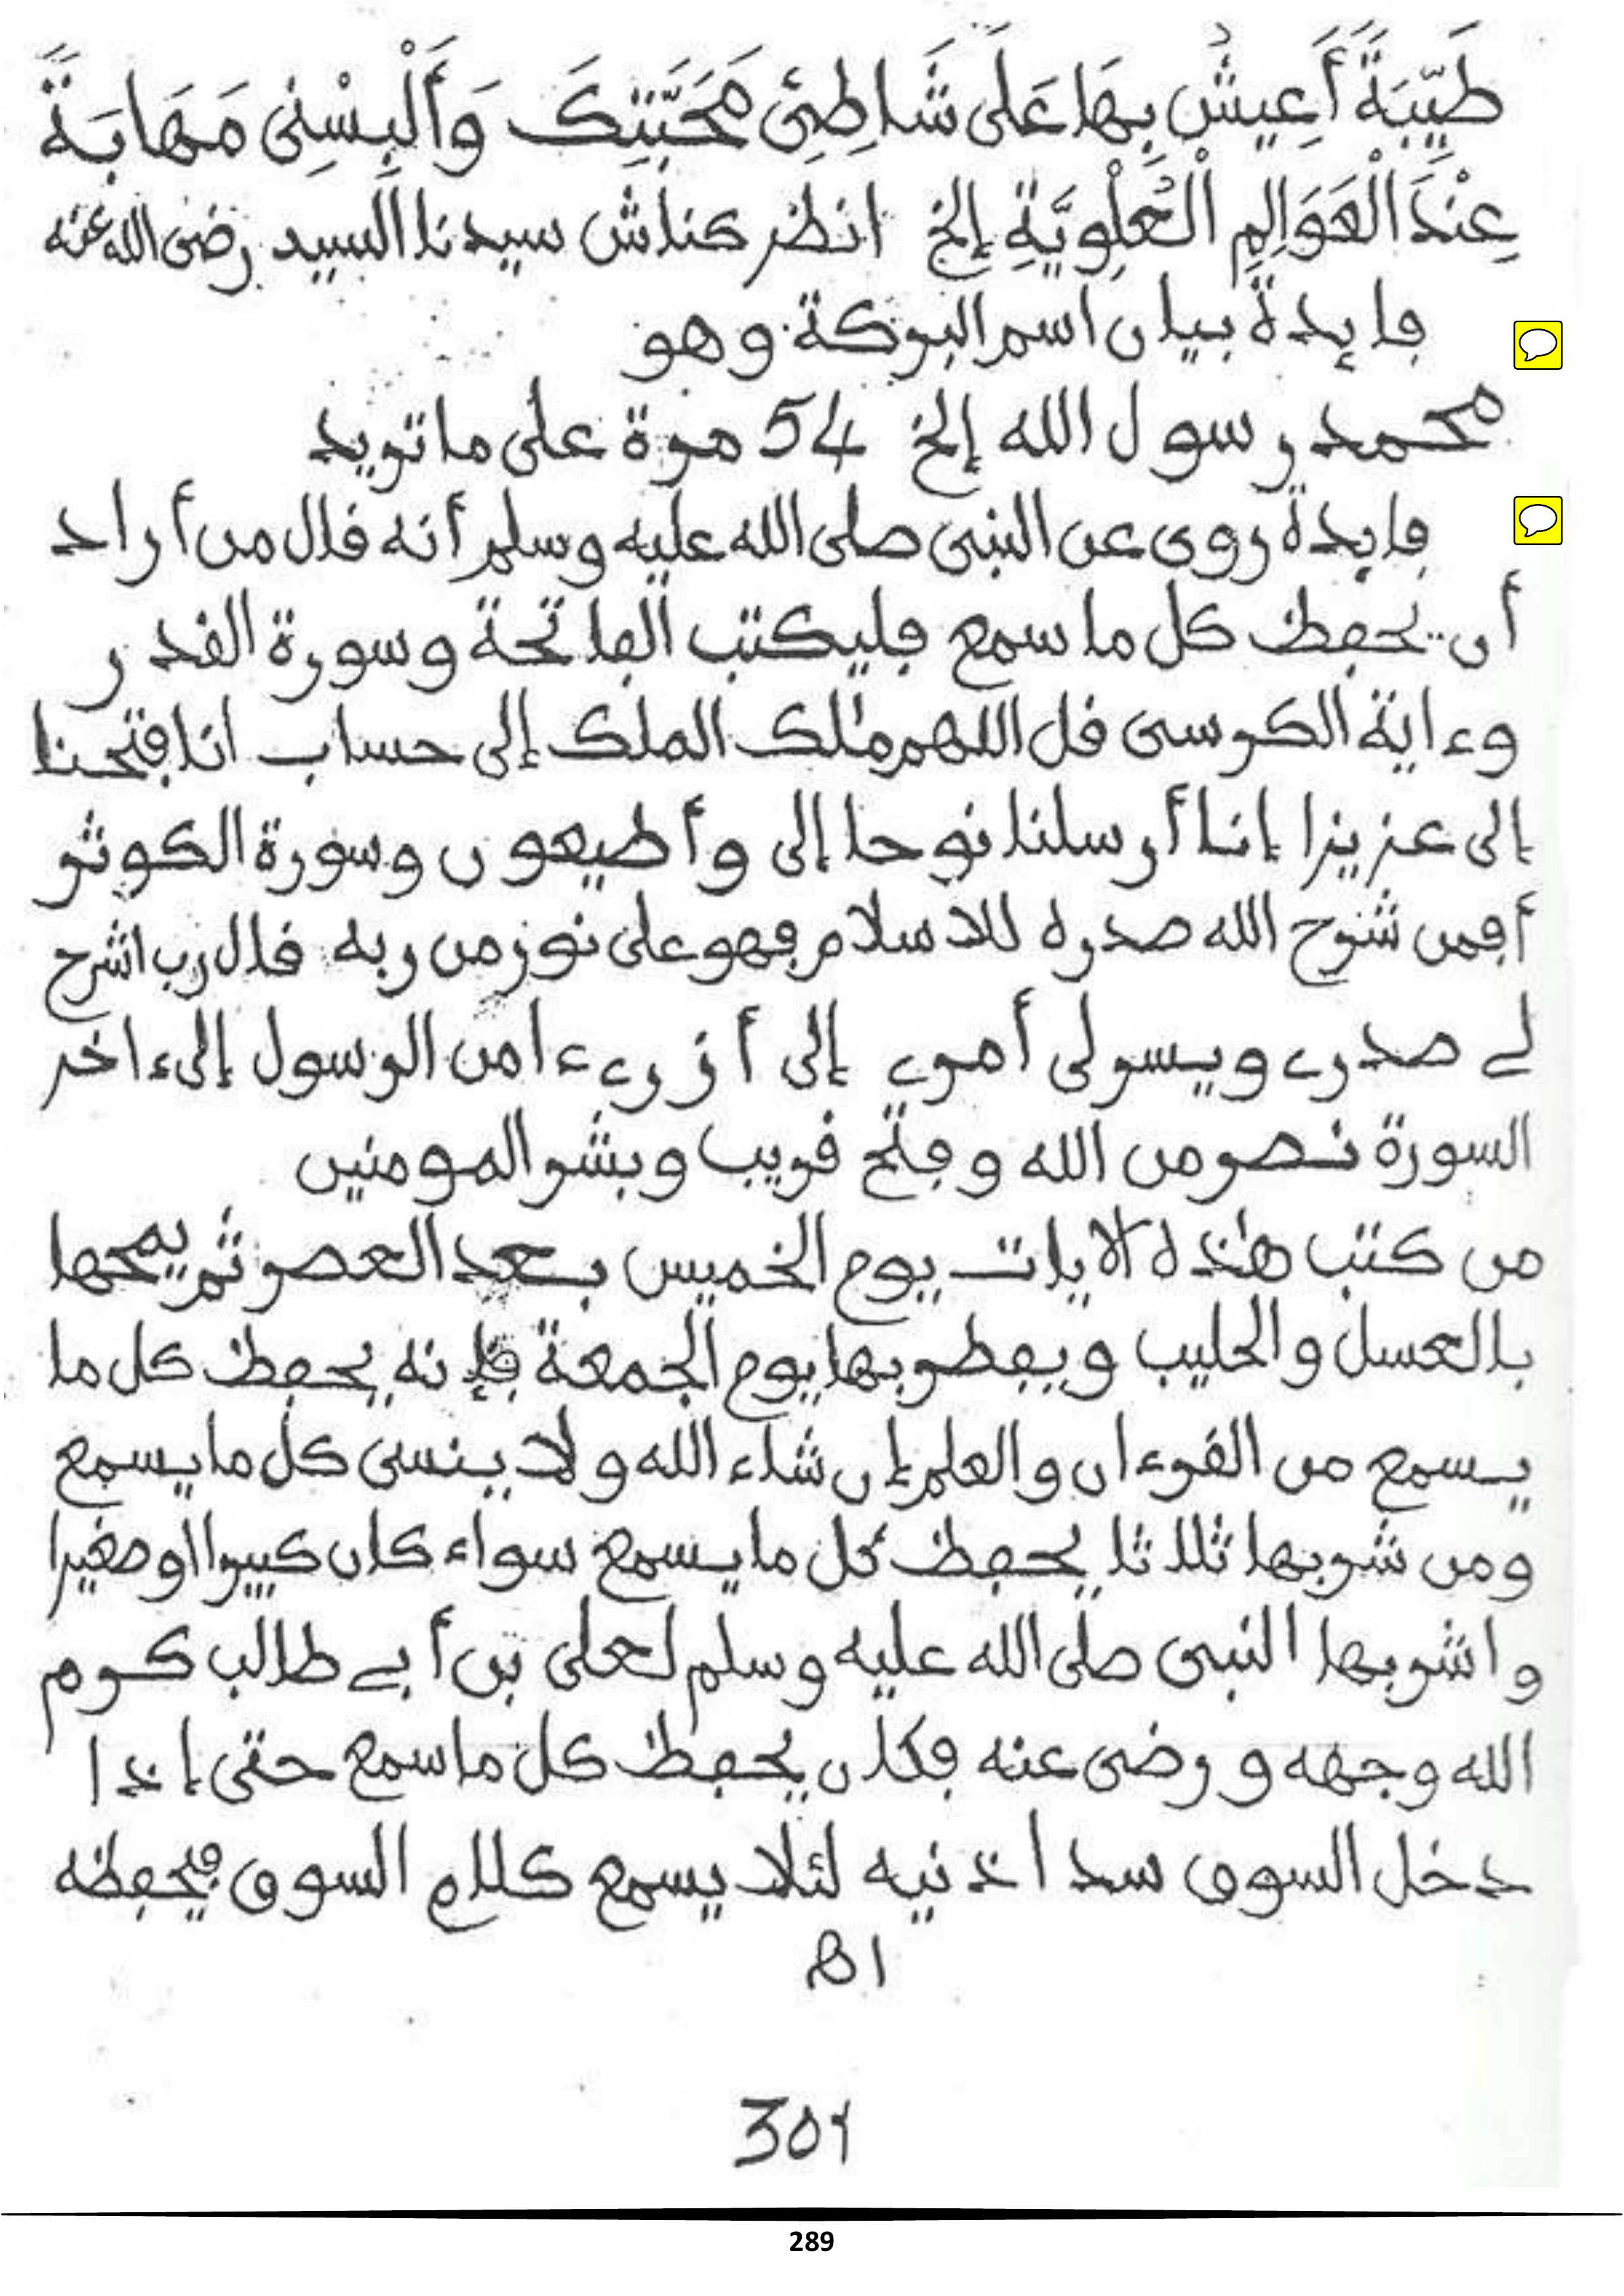 طَيِّبَةً أَعِيشُ بِهَا عَلَى شَاطِئِ مَحَبَّتِكَ وَأَلْبِسْنِى مَهَابَةً
عِنْدَ الْعَوَالِمِ الْعُلْوِيَّةِ إلخ انظر كناش سيدنا السيد رضى الله عنه
فايدة بيان اسم البركة وهو
محمد رسول الله إلخ 54 مرة على ما تريد
فايدة روى عن النبى صلى الله عليه وسلم أنه قال من أراد
أن يحفظ كل ما سمع فليكتب الفاتحة وسورة القدر
وءاية الكرسى قل اللهم ملك الملك إلى حساب انا فتحنا
إلى عزيزا إنا أرسلنا نوحا إلى وأطيعون وسورة الكوثر
أفمن شرح الله صدره للاسلام فهو على نور من ربه قال رب اشرح
لے صدرے ويسر لى أمرے إلى أزرے ءامن الرسول إلى ءاخر
السورة نصر من الله وفتح قريب وبشر المومنين
من كتب هذه الايات يوم الخميس بعد العصر ثم يمحها
بالعسل والحليب ويفطر بها يوم الجمعة فإنه يحفظ كل ما
يسمع من القرءان والعلم إن شاء الله ولا ينسى كل ما يسمع
ومن شربها ثلاثا يحفظ كل ما يسمع سواء كان كبيرا او صغيرا
واشربها النبى صلى الله عليه وسلم لعلى بن أبے طالب كرم
الله وجهه ورضى عنه فكان يحفظ كل ما سمع حتى إذا
دخل السوق سد اذنيه لئلا يسمع كلام السوق فيحفظه
81
301
289